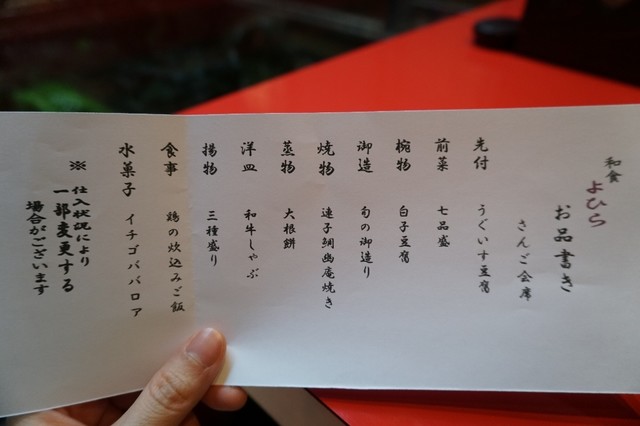 和食
よひら
お品書き
さんご会席
先付 うぐいす豆腐
前菜 七品盛
椀物 白子豆腐
御造 旬の御造り
焼物 連子鯛幽庵焼き
蒸物 大根餅
洋皿 和牛しゃぶ
揚物 三種盛り
食事 鶏の炊込みご飯
水菓子 イチゴババロア
※ 仕入状況により
一部変更する
場合がございます